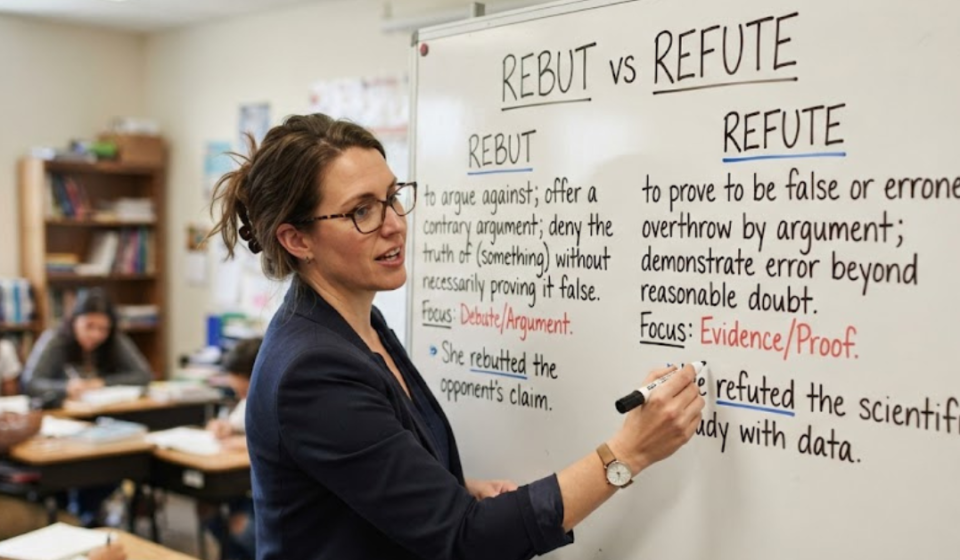 REBUT vs REFUTE
REBUT
to argue against; offer a
contrary argument; deny the
truth of (something) without
necessarily proving it false.
Focus: Debate/Argument.
She rebutted the
opponent's claim.
REFUTE
to prove to be false or errone
overthrow by argument;
demonstrate error beyond
reasonable doubt.
Focus: Evidence/Proof.
refuted the scientifi
with data.